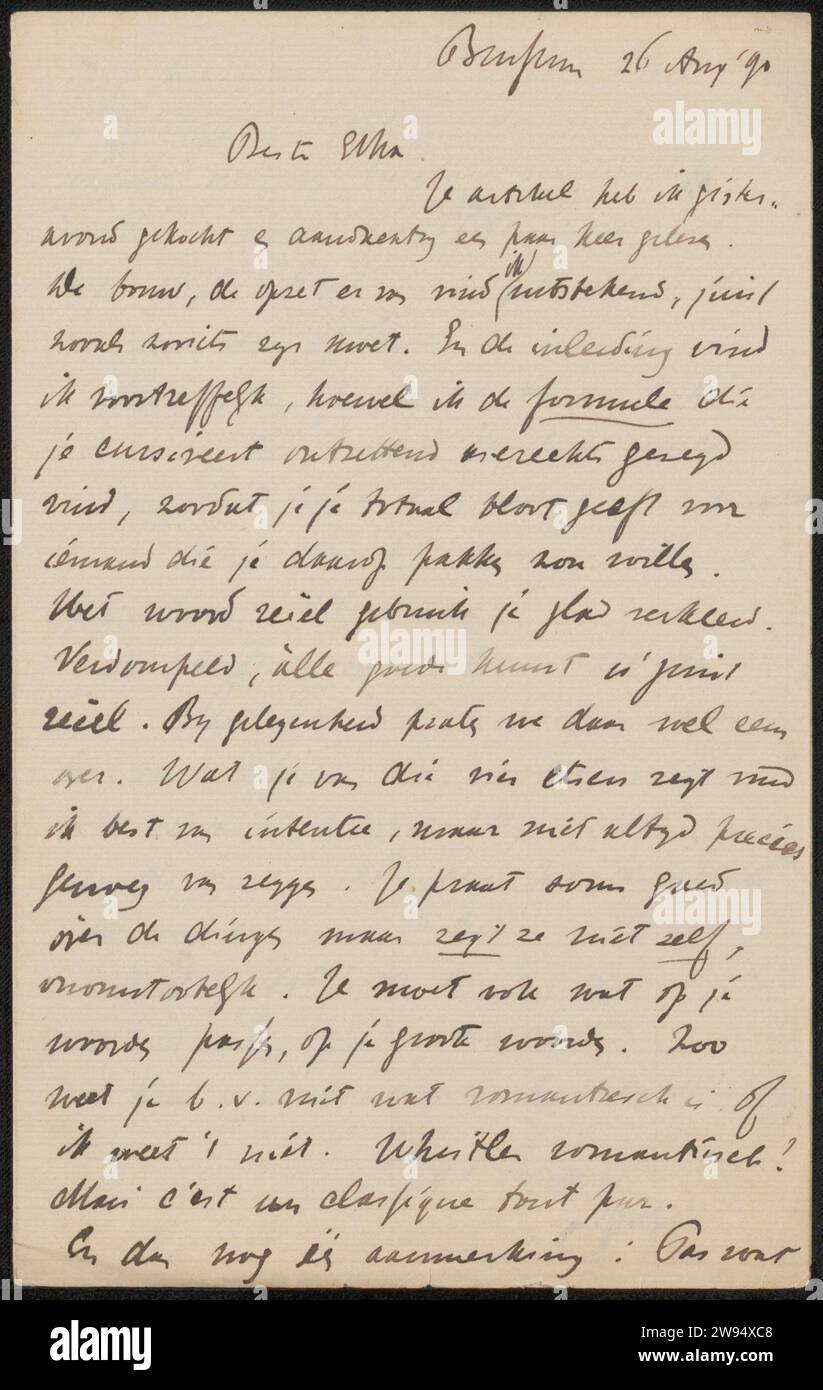 Bussum 26 Aug '90
Beste Etha.
Je artikel heb ik gister-
avond gekocht en aandachtig een paar keer gelezen.
De bouw, de opzet er van vind (ik) uitstekend, juist
zooals zooiets zijn moet. En de inleiding vind
ik voortreffelijk, hoewel ik de formule die
je cursiveert ontzettend averechts gezegd
vind, zoodat je je totaal bloot geeft voor
iemand die je daarop pakken zou willen.
Het woord reëel gebruik je glad verkeerd.
Verdompeld, àlle goede kunst is juist
reëel. Bij gelegenheid praten we daar wel eens
over. Wat je van die vier etsers zegt vind
ik best van intentie, maar niet altijd precies
genoeg van zeggen. Je praat soms goed
over de dingen maar zegt ze niet zelf,
onomstootelijk. Je moet ook wat op je
woorden passen, op je groote woorden. Zoo
weet je b.v. niet wat romantiesch is of
ik weet 't niet. Whistler romantiesch!
Mais c'est un classique tout pur.
En dan nog één aanmerking: Pas wat
alamy
alamy
Image ID: 2W94XC8
www.alamy.com